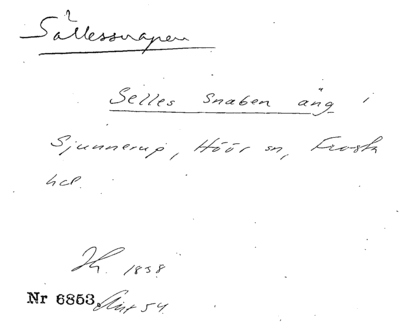 Sällessnapen
Selles snaben äng i
Sjunnerup, Höör sn, Frosta
hd.
1838
Nr 6853